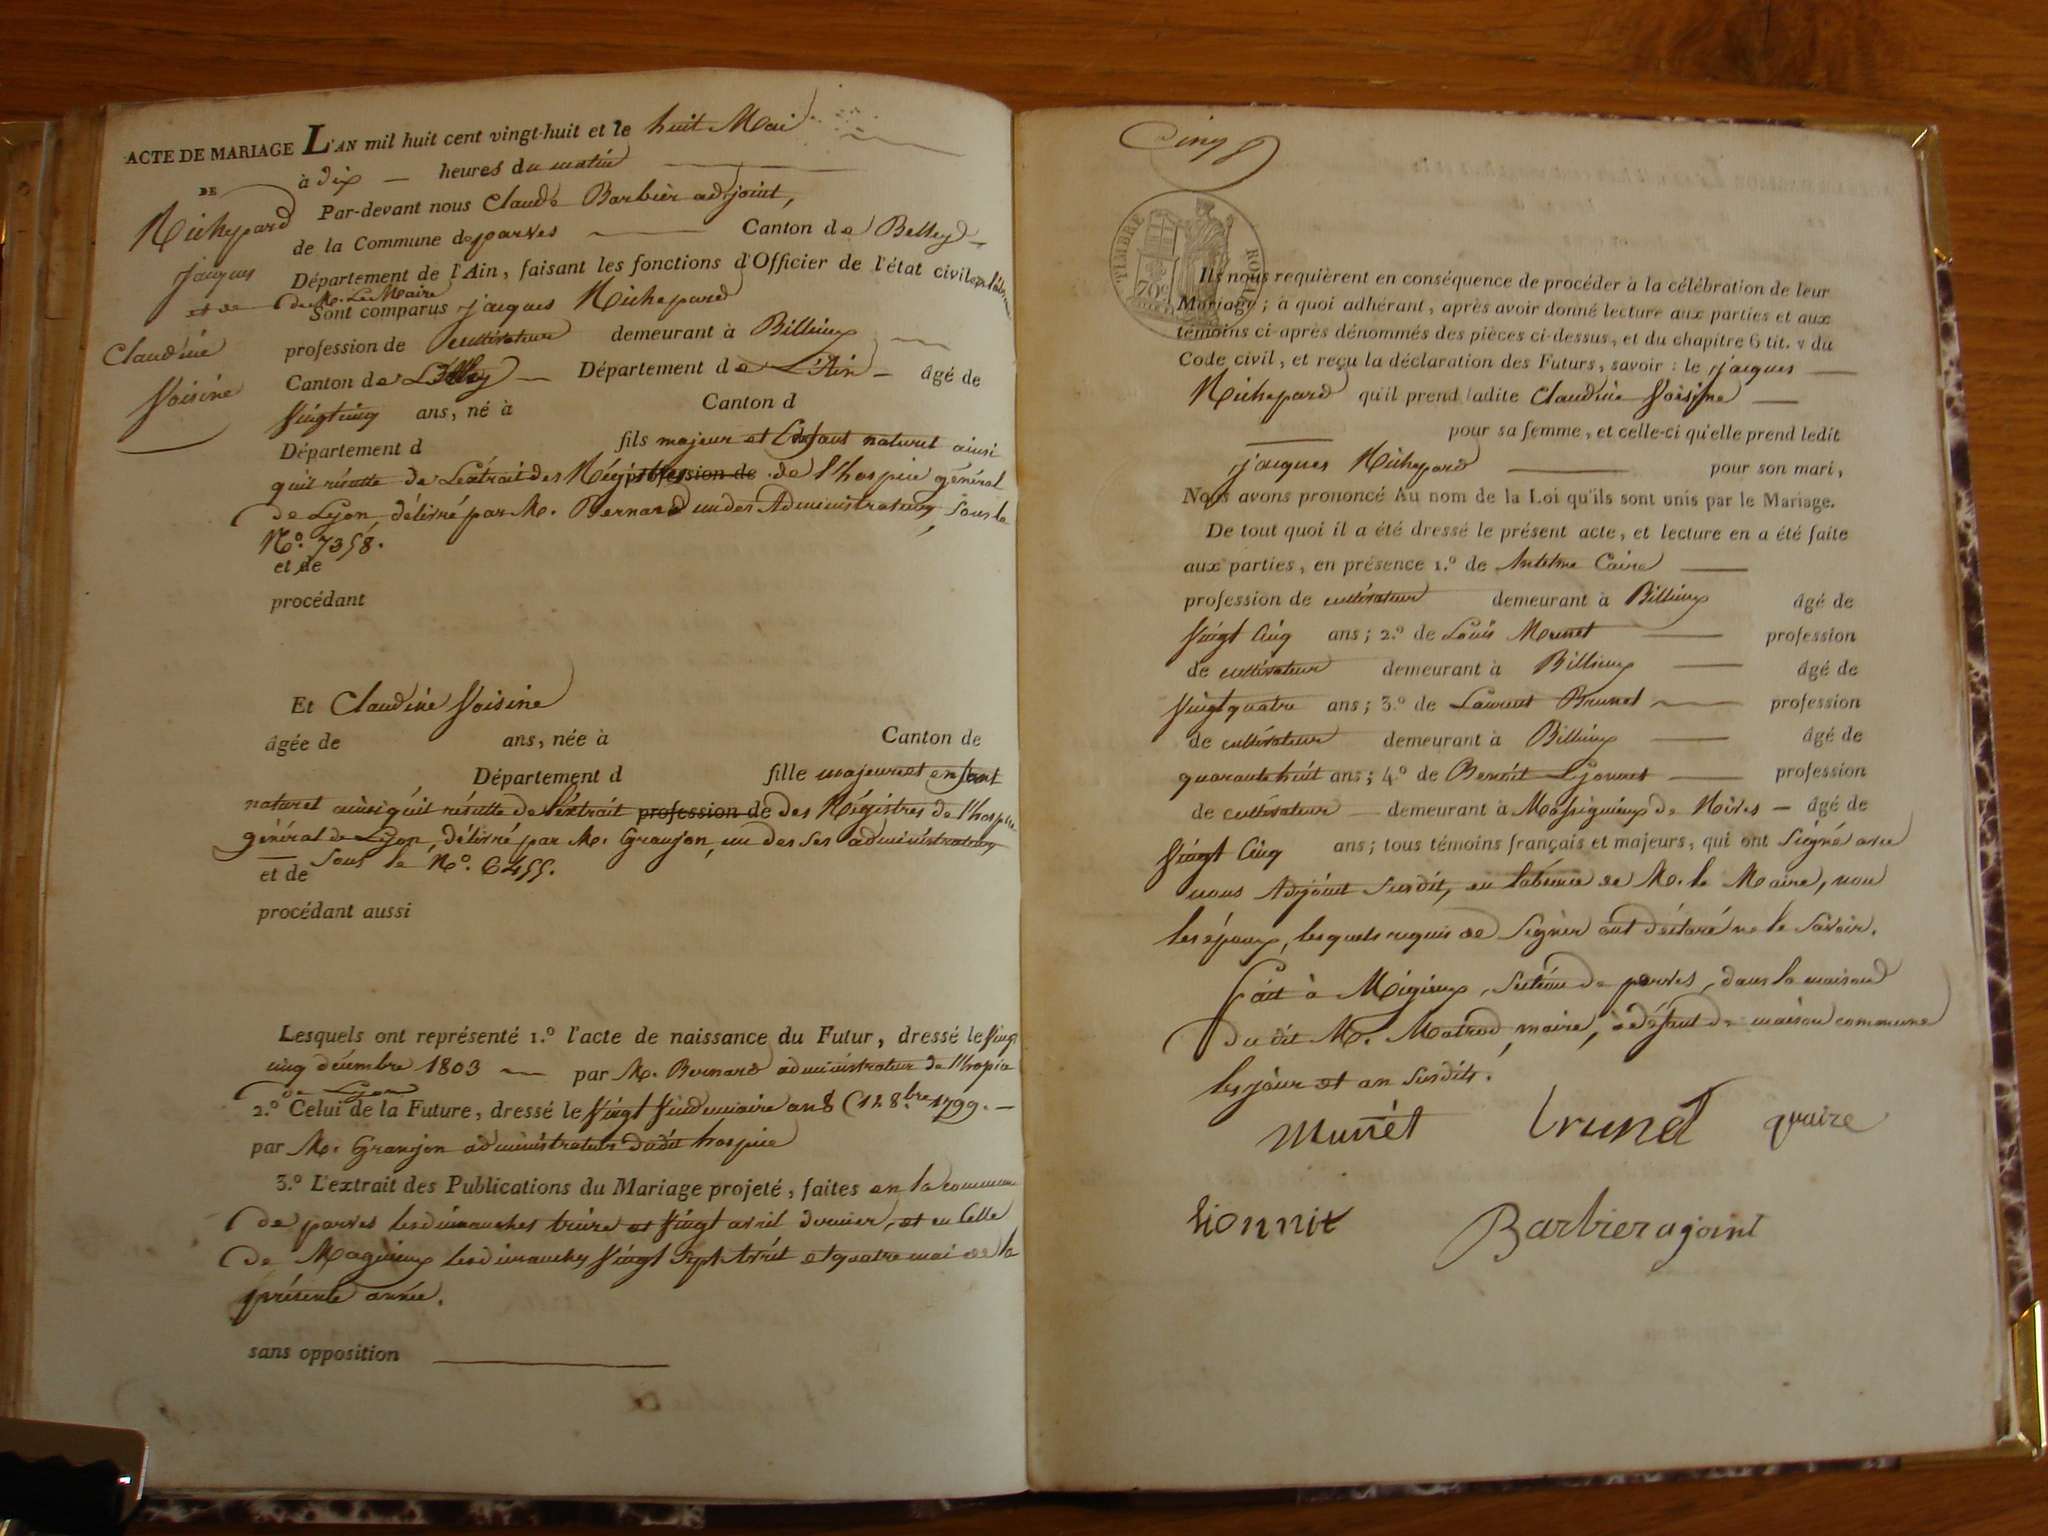 ACTE DE MARIAGE L'AN mil huit cent vingt-huit et le huit Mai
DE
à dix heures du matin
Richepard
jacques
et de
Claudine
Voisine
Par-devant nous Claude Barbier adjoint,
de la Commune de parves Canton de Belley
Département de l'Ain, faisant les fonctions d'Officier de l'état civil
de M. Le Maire
Sont comparus jacques Richepard
profession de cultivateur demeurant à Billieux
Canton de Belley Département de L'Ain âgé de
Vingt cinq ans, né à Canton d
Département d fils majeur et Enfant naturel ainsi
qu'il résulte de L'extrait des Régistres profession de de l'hospice général
de Lyon, délivré par M. Bernard un des Administrateurs, Sous le
N.o 7358.
et de
procédant
Et Claudine Voisine
âgée de ans, née à Canton de
Département d fille majeure et enfant
naturel ainsi qu'il résulte de l'extrait profession de des Régistres de l'hospice
général de Lyon, délivré par M. Granjon, un des ses administrateurs
et de Sous le N.o 6455.
procédant aussi
Lesquels ont représenté 1.o l'acte de naissance du Futur, dressé le Vingt
cinq décembre 1803 par M. Bernard administrateur de l'hospice
de Lyon
2.o Celui de la Future, dressé le Vingt Vindemiaire an 8 (12 8.bre 1799.
par M. Granjon administrateur dudit hospice
3.o L'extrait des Publications du Mariage projeté, faites en la commune
de parves les dimanches treize et Vingt avril dernier, et en Celle
de Magnieux les dimanches Vingt Sept Avril et quatre mai de la
présente année.
sans opposition
Cinq
TIMBRE ROYAL
70c
Ils nous requièrent en conséquence de procéder à la célébration de leur
Mariage; à quoi adhérant, après avoir donné lecture aux parties et aux
témoins ci-après dénommés des pièces ci-dessus, et du chapitre 6 tit. v du
Code civil, et reçu la déclaration des Futurs, savoir: le jacques
Richepard qu'il prend ladite Claudine Voisine
pour sa femme, et celle-ci qu'elle prend ledit
jacques Richepard pour son mari,
Nous avons prononcé Au nom de la Loi qu'ils sont unis par le Mariage.
De tout quoi il a été dressé le présent acte, et lecture en a été faite
aux parties, en présence 1.o de Antelme Caire
profession de cultivateur demeurant à Billieux âgé de
Vingt Cinq ans; 2.o de Louis Munet profession
de cultivateur demeurant à Billieux âgé de
Vingt quatre ans; 3.o de Laurent Brunet profession
de cultivateur demeurant à Billieux âgé de
quarante huit ans; 4.o de Benoit Lyonnet profession
de cultivateur demeurant à Massignieux de Rives âgé de
Vingt Cinq ans; tous témoins français et majeurs, qui ont Signé avec
nous Adjoint Susdit, en l'absence de M. le Maire, non
les époux, lesquels requis de Signer ont déclaré ne le Savoir.
fait à Migieux, de parves, dans la maison
du dit M. Matrod, maire, à défaut de maison commune
les jour et an Susdits.
munet brunet quaire
lionnit Barbier ajoint